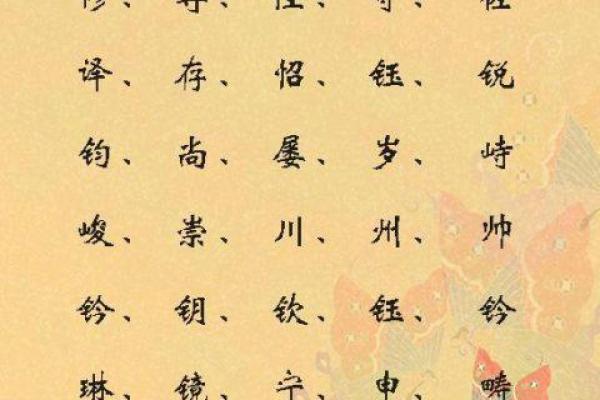 译、存、怊、钰、锐
钧、尚、屡、岁、峙
峻、崇、川、州、帅
钤、钥、钦、钰、钤
琳、镜、宁、申、畴